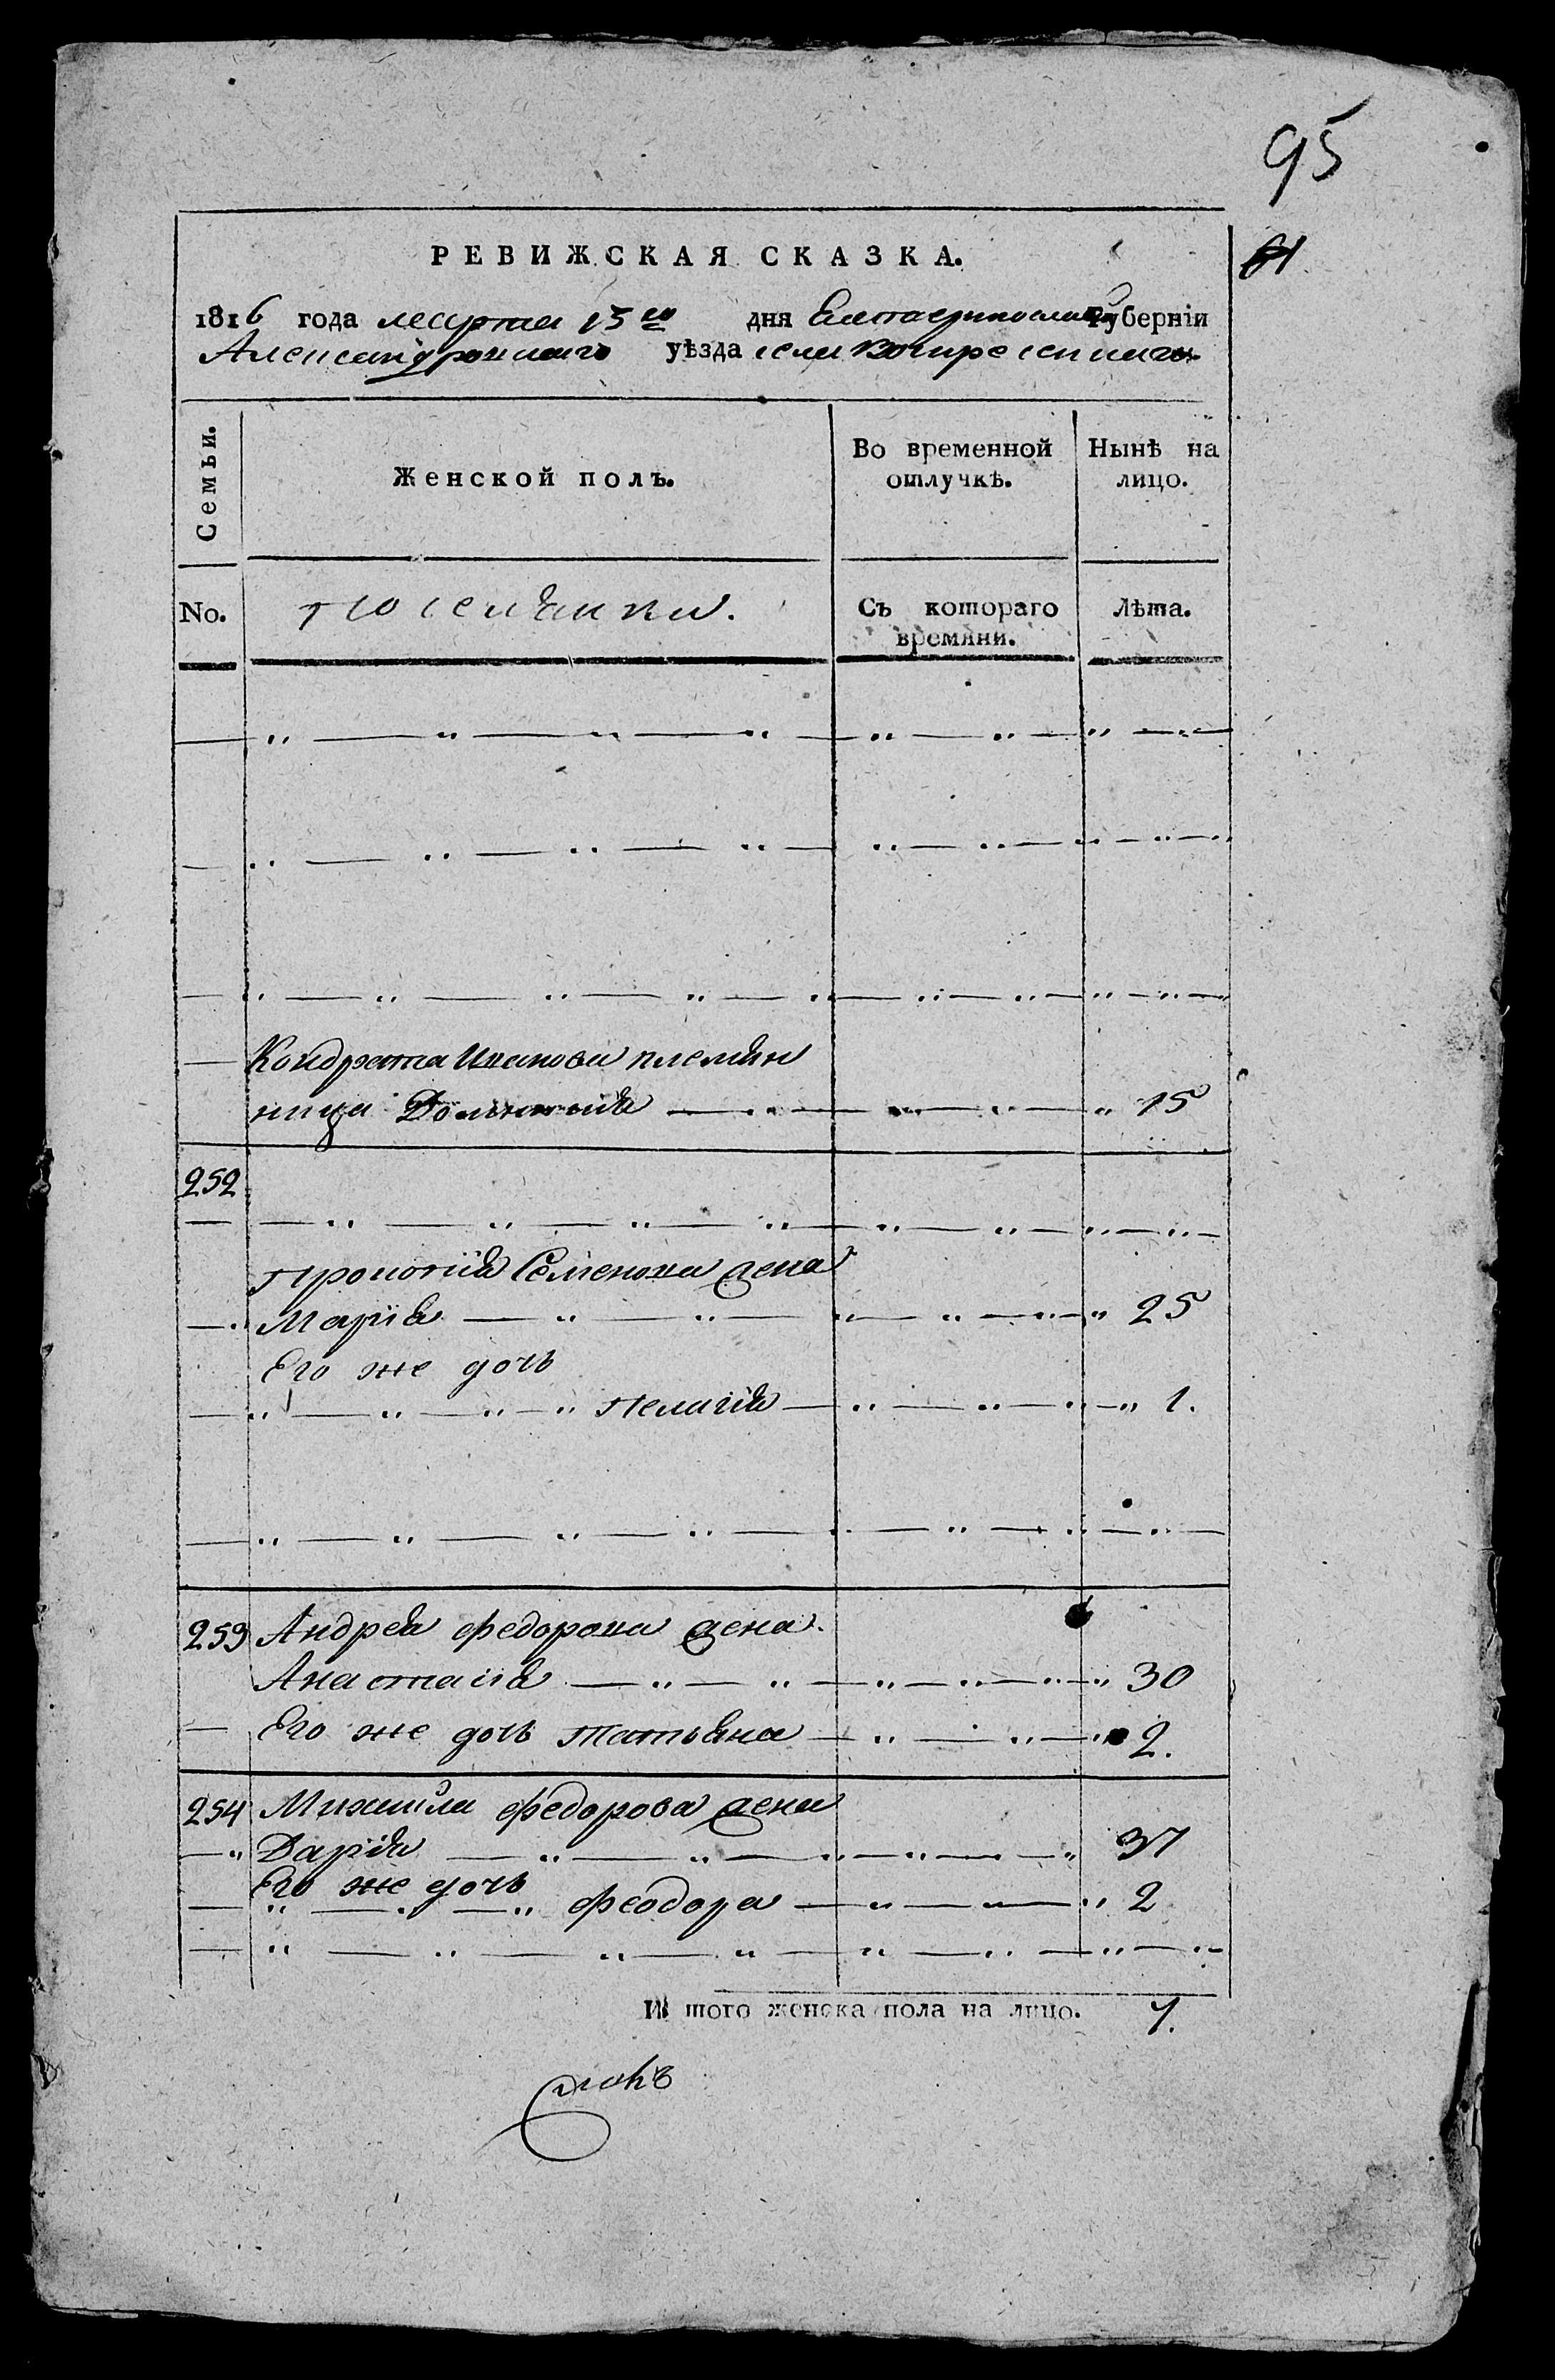 95
РЕВИЖСКАЯ СКАЗКА.
1816 года марта 15го дня Екатеринославской Губернiи
Александровскаго уѣзда села Воскресенскаго
Семьи.
Женской полъ.
Во временной отлучкѣ.
Нынѣ на лицо.
No.
Поселянки.
Съ котораго времяни.
Лѣта.
Кондрата Иванова племян
ница 15
252
Прокопiя Семенова жена
Марiя 25
Его же дочь
Пелагiя 1.
253 Андрея Федорова жена
Анастасiя 30
Его же дочь Татьяна 2.
254 Михайла Федорова жена
Дарiя 37
Его же дочь
Феодора 2
И того женска пола на лицо. 7.